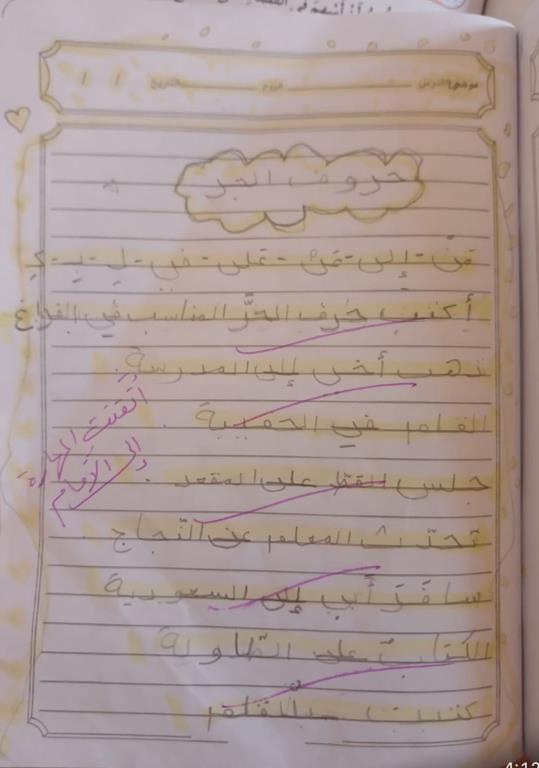 موضوع الدرس اليوم التاريخ / /
حروف الجر
مِنْ - إلى - عَنْ - عَلى - في - لِـ - بِـ - كـ
أكتب حرف الجرّ المناسب في الفراغ
ذهب أخي إلى المدرسة.
القلم في الحقيبة .
جلس القط على المقعد .
تحدّث المعلم عن النّجاح
سافَرَ أَبي إلى السعودية
الكتابُ على الطّاولة
كتبت بالقلم
أتقنت المهارة
إلى الأمام
4:12